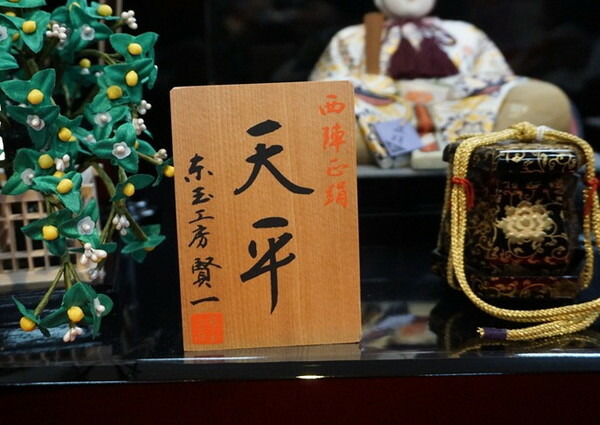 西陣正絹
天平
东玉工房賢一